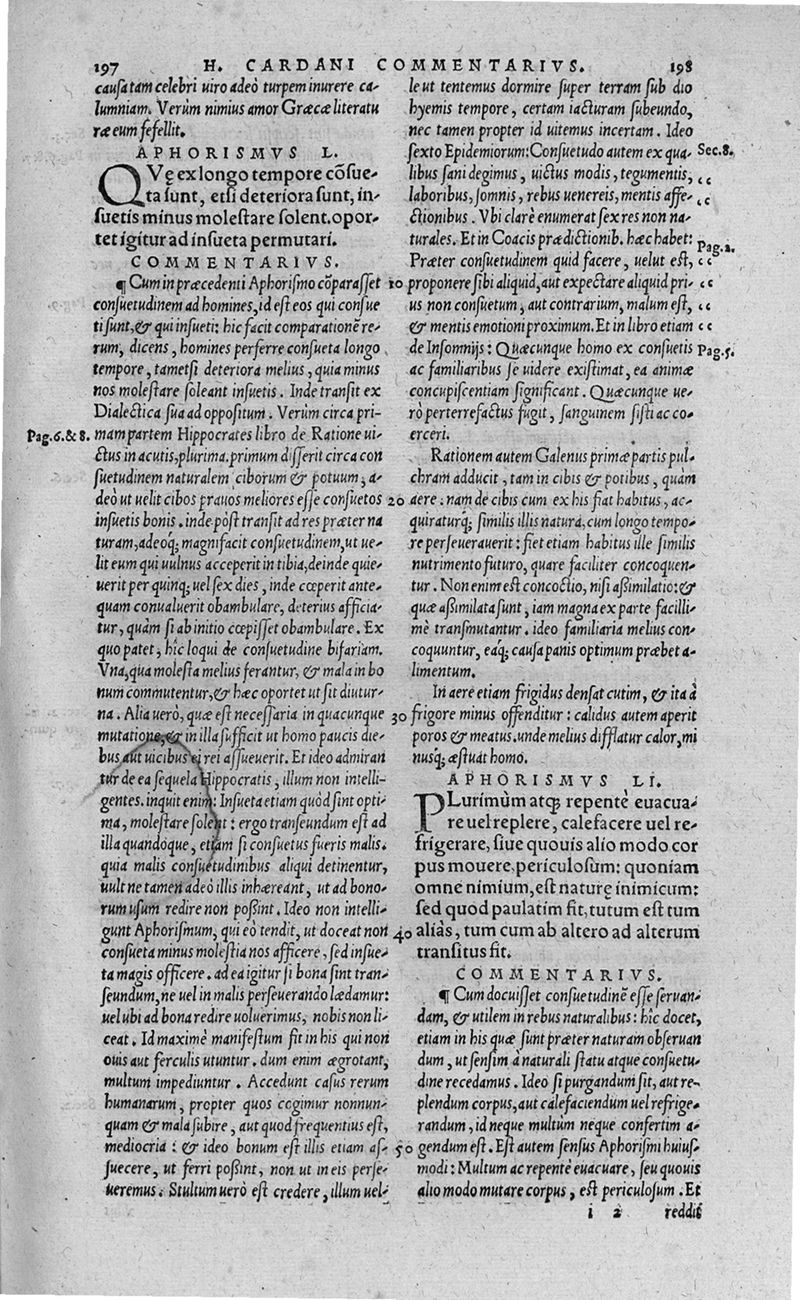 197 H. CARDANI COMMENTARIVS. 198
causa tam celebri uiro adeò turpem inurere ca-
lumniam. Verùm nimius amor Græcæ literatu
ræ eum fefellit.
APHORISMVS L.
QVę ex longo tempore cõsue-
ta sunt, etsi deteriora sunt, in-
suetis minus molestare solent. opor-
tet igitur ad insueta permutari.
COMMENTARIVS.
¶ Cum in præcedenti Aphorismo cõparasset
consuetudinem ad homines, id est eos qui consue
ti sunt, & qui insueti: hic facit comparationẽ re-
rum, dicens, homines perferre consueta longo
tempore, tametsi deteriora melius, quia minus
nos molestare soleant insuetis. Inde transit ex
Dialectica sua ad oppositum. Verùm circa pri-
Pag. 6. & 8. mam partem Hippocrates libro de Ratione ui-
ctus in acutis, plurima. primum disserit circa con
suetudinem naturalem ciborum & potuum, a-
deò ut uelit cibos prauos meliores esse consuetos
insuetis bonis. inde pòst transit ad res præter na
turam, adeoq́; magnifacit consuetudinem, ut ue-
lit eum qui uulnus acceperit in tibia, deinde quie-
uerit per quinq; uel sex dies, inde cœperit ante-
quam conualuerit obambulare, deterius afficia-
tur, quàm si ab initio cœpisset obambulare. Ex
quo patet, hîc loqui de consuetudine bifariam.
Vna, qua molesta melius ferantur, & mala in bo
num commutentur, & hæc oportet ut sit diutur-
na. Alia uerò, quæ est necessaria in quacunque
mutatione, & in illa sufficit ut homo paucis die-
bus aut uicibus ei rei assueuerit. Et ideo admiran
tur de ea sequela Hippocratis, illum non intelli-
gentes. inquit enim: Insueta etiam quòd sint opti-
ma, molestare solent: ergo transeundum est ad
illa quandoque, etiam si consuetus fueris malis.
quia malis consuetudinibus aliqui detinentur,
uult ne tamen adeò illis inhæreant, ut ad bono-
rum usum redire non poßint. Ideo non intelli-
gunt Aphorismum, qui eò tendit, ut doceat non
consueta minus molestia nos afficere, sed insue-
ta magis officere. ad ea igitur si bona sint tran-
seundum, ne uel in malis perseuerando lædamur:
uel ubi ad bona redire uoluerimus, nobis non li-
ceat. Id maximè manifestum fit in his qui non
ouis aut ferculis utuntur. dum enim ægrotant,
multum impediuntur. Accedunt casus rerum
humanarum, propter quos cogimur nonnun-
quam & mala subire, aut quod frequentius est,
mediocria: & ideo bonum est illis etiam as-
suecere, ut ferri poßint, non ut in eis perse-
ueremus. Stultum uerò est credere, illum uel-
le ut tentemus dormire super terram sub dio
hyemis tempore, certam iacturam subeundo,
nec tamen propter id uitemus incertam. Ideo
sexto Epidemiorum: Consuetudo autem ex qua- Sec. 8.
libus sani degimus, uictus modis, tegumentis, ‘‘
laboribus, somnis, rebus uenereis, mentis affe- ‘‘
ctionibus. Vbi clarè enumerat sex res non na-
turales. Et in Coacis prædictionib. hæc habet: Pag. 2.
Præter consuetudinem quid facere, uelut est, ‘‘
10 proponere sibi aliquid, aut expectare aliquid pri- ‘‘
us non consuetum, aut contrarium, malum est, ‘‘
& mentis emotioni proximum. Et in libro etiam ‘‘
de Insomnijs: Quæcunque homo ex consuetis Pag. 5.
ac familiaribus se uidere existimat, ea animæ
concupiscentiam significant. Quæcunque ue-
rò perterrefactus fugit, sanguinem sisti ac co-
erceri.
Rationem autem Galenus primæ partis pul-
chram adducit, tam in cibis & potibus, quàm
20 aere. nam de cibis cum ex his fiat habitus, ac-
quiraturq́; similis illis natura, cum longo tempo-
re perseuerauerit: fiet etiam habitus ille similis
nutrimento futuro, quare faciliter concoquen-
tur. Non enim est concoctio, nisi aßimilatio: &
quæ aßimilata sunt, iam magna ex parte facilli-
mè transmutantur. ideo familiaria melius con-
coquuntur, eaq́; causa panis optimum præbet a-
limentum.
In aere etiam frigidus densat cutim, & ita à
30 frigore minus offenditur: calidus autem aperit
poros & meatus. unde melius difflatur calor, mi
nusq́; æstuat homo.
APHORISMVS LI.
PLurimùm atq; repentè euacua-
re uel replere, calefacere uel re-
frigerare, siue quouis alio modo cor
pus mouere, periculosum: quoniam
omne nimium, est naturę inimicum:
sed quod paulatim fit, tutum est tum
40 aliàs, tum cum ab altero ad alterum
transitus fit.
COMMENTARIVS.
¶ Cum docuisset consuetudinẽ esse seruan-
dam, & utilem in rebus naturalibus: hîc docet,
etiam in his quæ sunt præter naturam obseruan
dum, ut sensim à naturali statu atque consuetu-
dine recedamus. Ideo si purgandum sit, aut re-
plendum corpus, aut calefaciendum uel refrige-
randum, id neque multum neque confertim a-
50 gendum est. Est autem sensus Aphorismi huius-
modi: Multum ac repentè euacuare, seu quouis
alio modo mutare corpus, est periculosum. Et
i 2 reddit